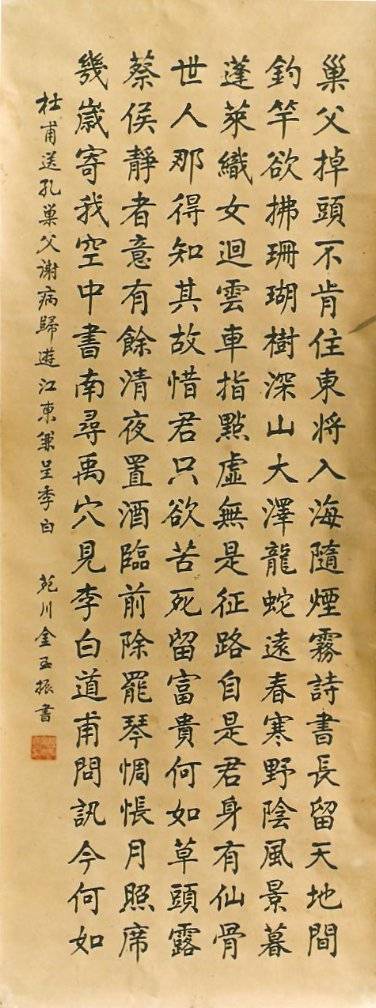 巢父掉頭不肯住東將入海隨煙霧詩書長留天地間
釣竿欲拂珊瑚樹深山大澤龍蛇遠春寒野陰風景暮
蓬萊織女迴雲車指點虛無是征路自是君身有仙骨
世人那得知其故惜君只欲苦死留富貴何如草頭露
蔡侯靜者意有餘清夜置酒臨前除罷琴惆悵月照席
幾歲寄我空中書南尋禹穴見李白道甫問訊今何如
杜甫送孔巢父謝病歸遊江東兼呈李白 川金玉振書